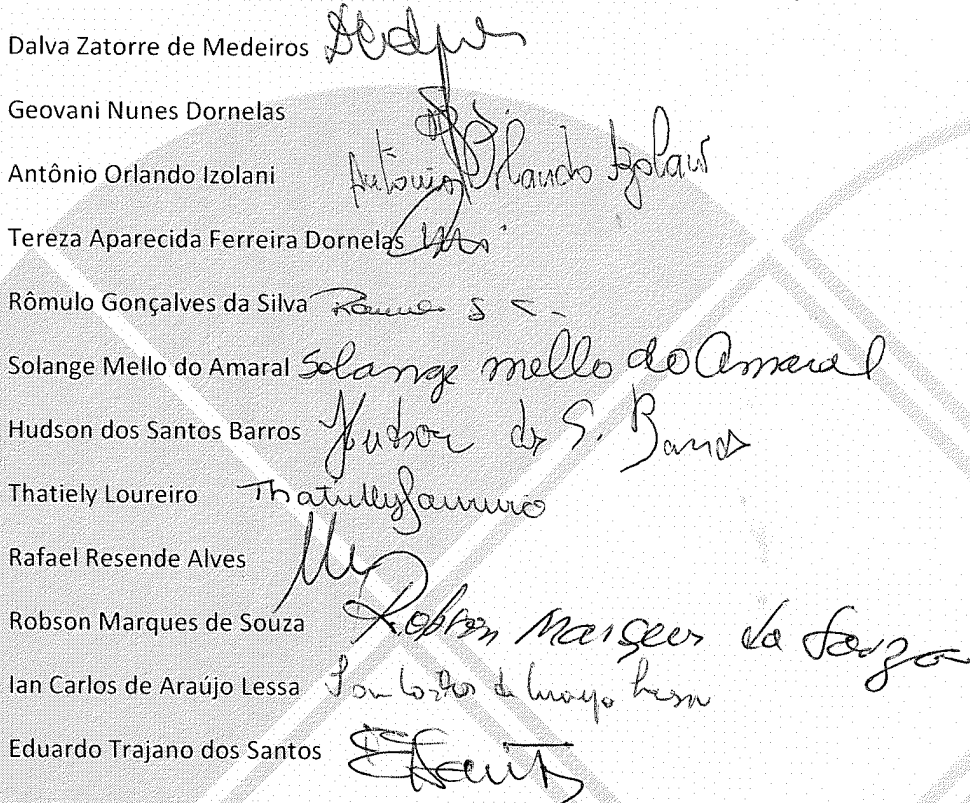 Dalva Zatorre de Medeiros
Geovani Nunes Dornelas
Antônio Orlando Izolani Antônio Orlando Izolani
Tereza Aparecida Ferreira Dornelas
Rômulo Gonçalves da Silva
Solange Mello do Amaral Solange mello do Amaral
Hudson dos Santos Barros Hudson dos S. Barros
Thatiely Loureiro Thatielly Loureiro
Rafael Resende Alves
Robson Marques de Souza Robson Marques de Souza
Ian Carlos de Araújo Lessa Ian Carlos de Araujo Lessa
Eduardo Trajano dos Santos